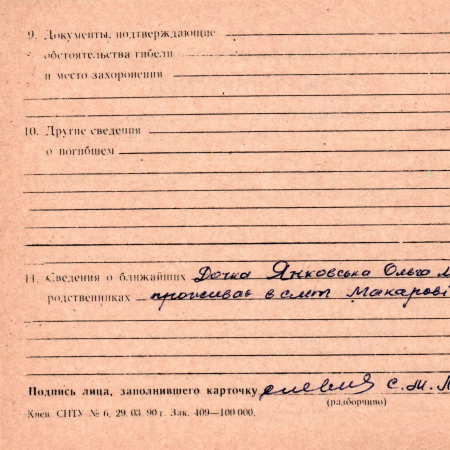 9. Документы, подтверждающие
обстоятельства гибели
и место захоронения
10. Другие сведения
о погибшем
11. Сведения о ближайших Дочка Янковська Ольга М
родственниках проживає в смт Макарові
Подпись лица, заполнившего карточку С. М.
(разборчиво)
Киев. СПТУ № 6, 29. 03. 90 г. Зак. 409—100 000.